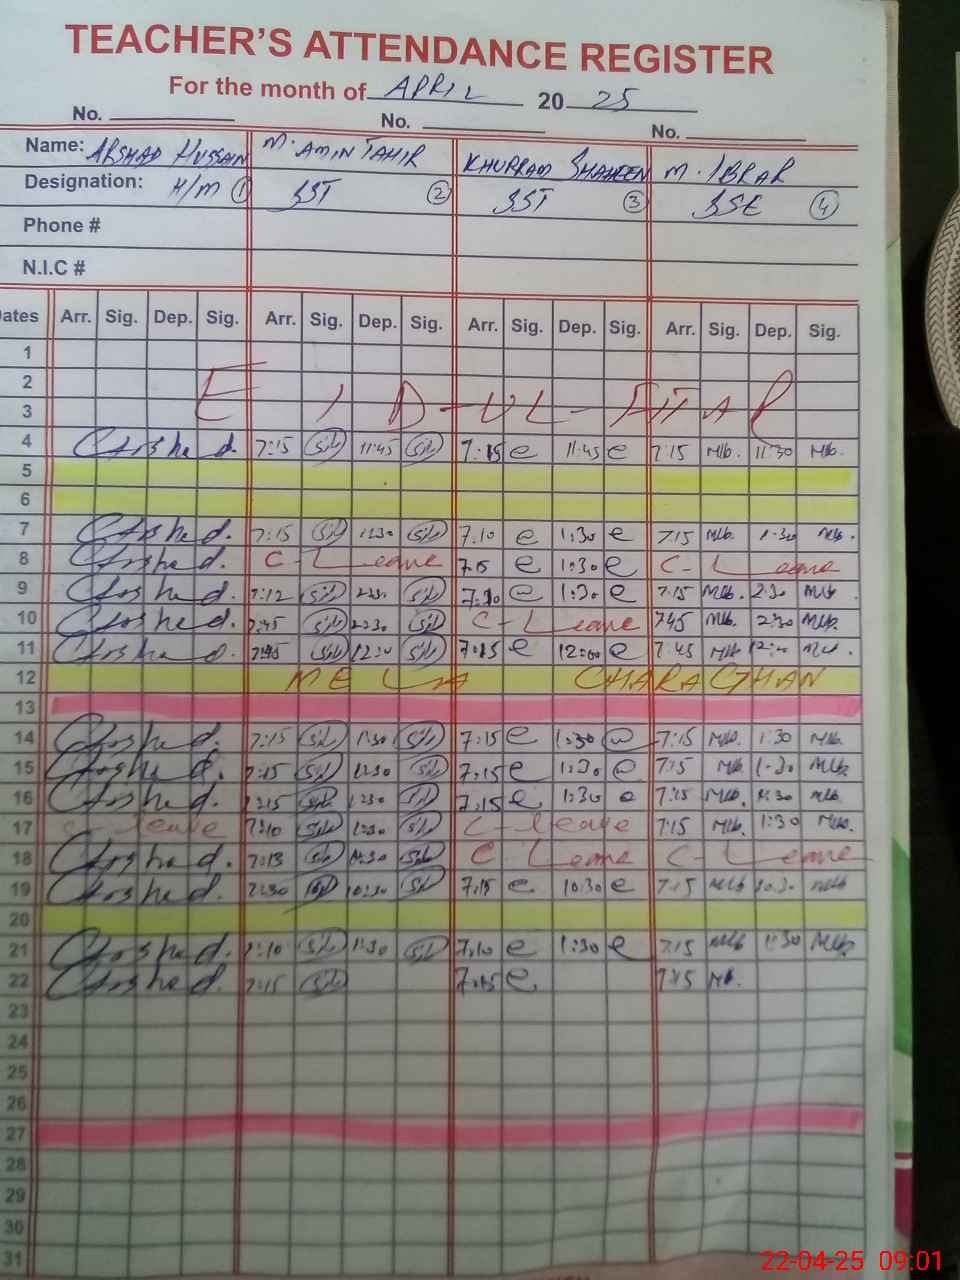 TEACHER'S ATTENDANCE REGISTER
For the month of APRIL 20 25
No. No. No.
Name: ARSHAD HUSSAIN M. AMIN TAHIR KHURRAM SHAHEEN M. IBRAR
Designation: H/M 1 SST 2 SST 3 SSE 4
Phone #
N.I.C #
Dates Arr. Sig. Dep. Sig. Arr. Sig. Dep. Sig. Arr. Sig. Dep. Sig. Arr. Sig. Dep. Sig.
1
2
3 EID-UL-FITAR
4 Arshad. 7:15 11:45 7:15 e 11:45 e 7:15 MIb. 11:30 MIb.
5
6
7 Arshad. 7:15 7:10 e 1:30 e 7:15 MIb. 1:30 MIb.
8 Arshad. C-Leave 7:15 e 1:30 e C-Leave
9 Arshad. 7:12 e 1:30 e 7:15 MIb. 2:30 MIb.
10 Arshad. C-Leave 7:45 MIb. 2:30 MIb.
11 Arshad. 7:45 12:30 7:15 e 12:00 e 7:45 MIb
12 MELA CHARAGHAN
13
14 Arshad. 7:15 1:30 7:15 e 1:30 e 7:15 MIb. 1:30 MIb.
15 Arshad. 7:15 7:15 e 1:30 e 7:15 MIb 1:30 MIb.
16 Arshad. 7:15 1:30 7:15 e 1:30 e 7:15 MIb. MIb.
17 C-leave 7:10 1:30 C-leave 7:15 MIb. 1:30 MIb.
18 Arshad. 7:13 C-Leave C-Leave
19 Arshad. 10:30 7:15 e 10:30 e 7:15 MIb 10:30 MIb
20
21 Arshad. 7:10 1:30 7:10 e 1:30 e 7:15 MIb 1:30 MIb.
22 Arshad. 7:15 7:15 e 7:15 MIb.
23
24
25
26
27
28
29
30
31
22-04-25 09:01